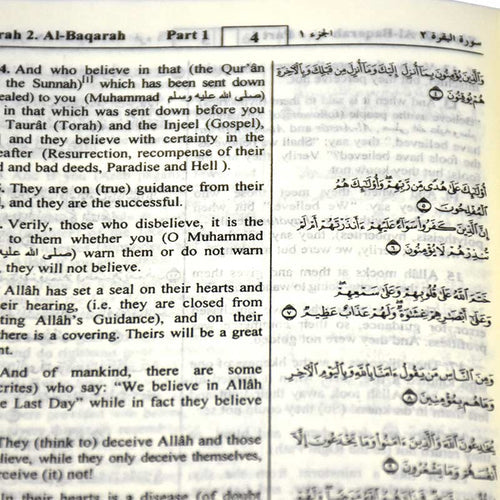 rah 2. Al-Baqarah Part 1 4 الجزء ١ سورة البقرة ٢
4. And who believe in that (the Qur'ân
the Sunnah)[1] which has been sent down
ealed) to you (Muhammad صلى الله عليه وسلم
in that which was sent down before you
Taurât (Torah) and the Injeel (Gospel),
and they believe with certainty in the
eafter (Resurrection, recompense of their
d and bad deeds, Paradise and Hell ).
They are on (true) guidance from their
l, and they are the successful.
Verily, those who disbelieve, it is the
to them whether you (O Muhammad
صلى الله عليه) warn them or do not warn
, they will not believe.
Allâh has set a seal on their hearts and
eir hearing, (i.e. they are closed from
ting Allâh's Guidance), and on their
here is a covering. Theirs will be a great
nt.
And of mankind, there are some
crites) who say: "We believe in Allâh
e Last Day" while in fact they believe
They (think to) deceive Allâh and those
lieve, while they only deceive themselves,
rceive (it) not!
In their hearts is a disease (of doubt
وَالَّذِينَ يُؤْمِنُونَ بِمَا أُنزِلَ إِلَيْكَ وَمَا أُنزِلَ مِن قَبْلِكَ وَبِالْآخِرَةِ
هُمْ يُوقِنُونَ ٤
أُوْلَٰئِكَ عَلَىٰ هُدًى مِّن رَّبِّهِمْ وَأُوْلَٰئِكَ هُمُ
الْمُفْلِحُونَ ٥
إِنَّ الَّذِينَ كَفَرُوا سَوَاءٌ عَلَيْهِمْ ءَأَنذَرْتَهُمْ أَمْ لَمْ
تُنذِرْهُمْ لَا يُؤْمِنُونَ ٦
خَتَمَ اللَّهُ عَلَىٰ قُلُوبِهِمْ وَعَلَىٰ سَمْعِهِمْ
وَعَلَىٰ أَبْصَارِهِمْ غِشَاوَةٌ وَلَهُمْ عَذَابٌ عَظِيمٌ ٧
وَمِنَ النَّاسِ مَن يَقُولُ ءَامَنَّا بِاللَّهِ وَبِالْيَوْمِ الْآخِرِ
وَمَا هُم بِمُؤْمِنِينَ ٨
يُخَادِعُونَ اللَّهَ وَالَّذِينَ ءَامَنُوا وَمَا يَخْدَعُونَ إِلَّا
أَنفُسَهُمْ وَمَا يَشْعُرُونَ ٩